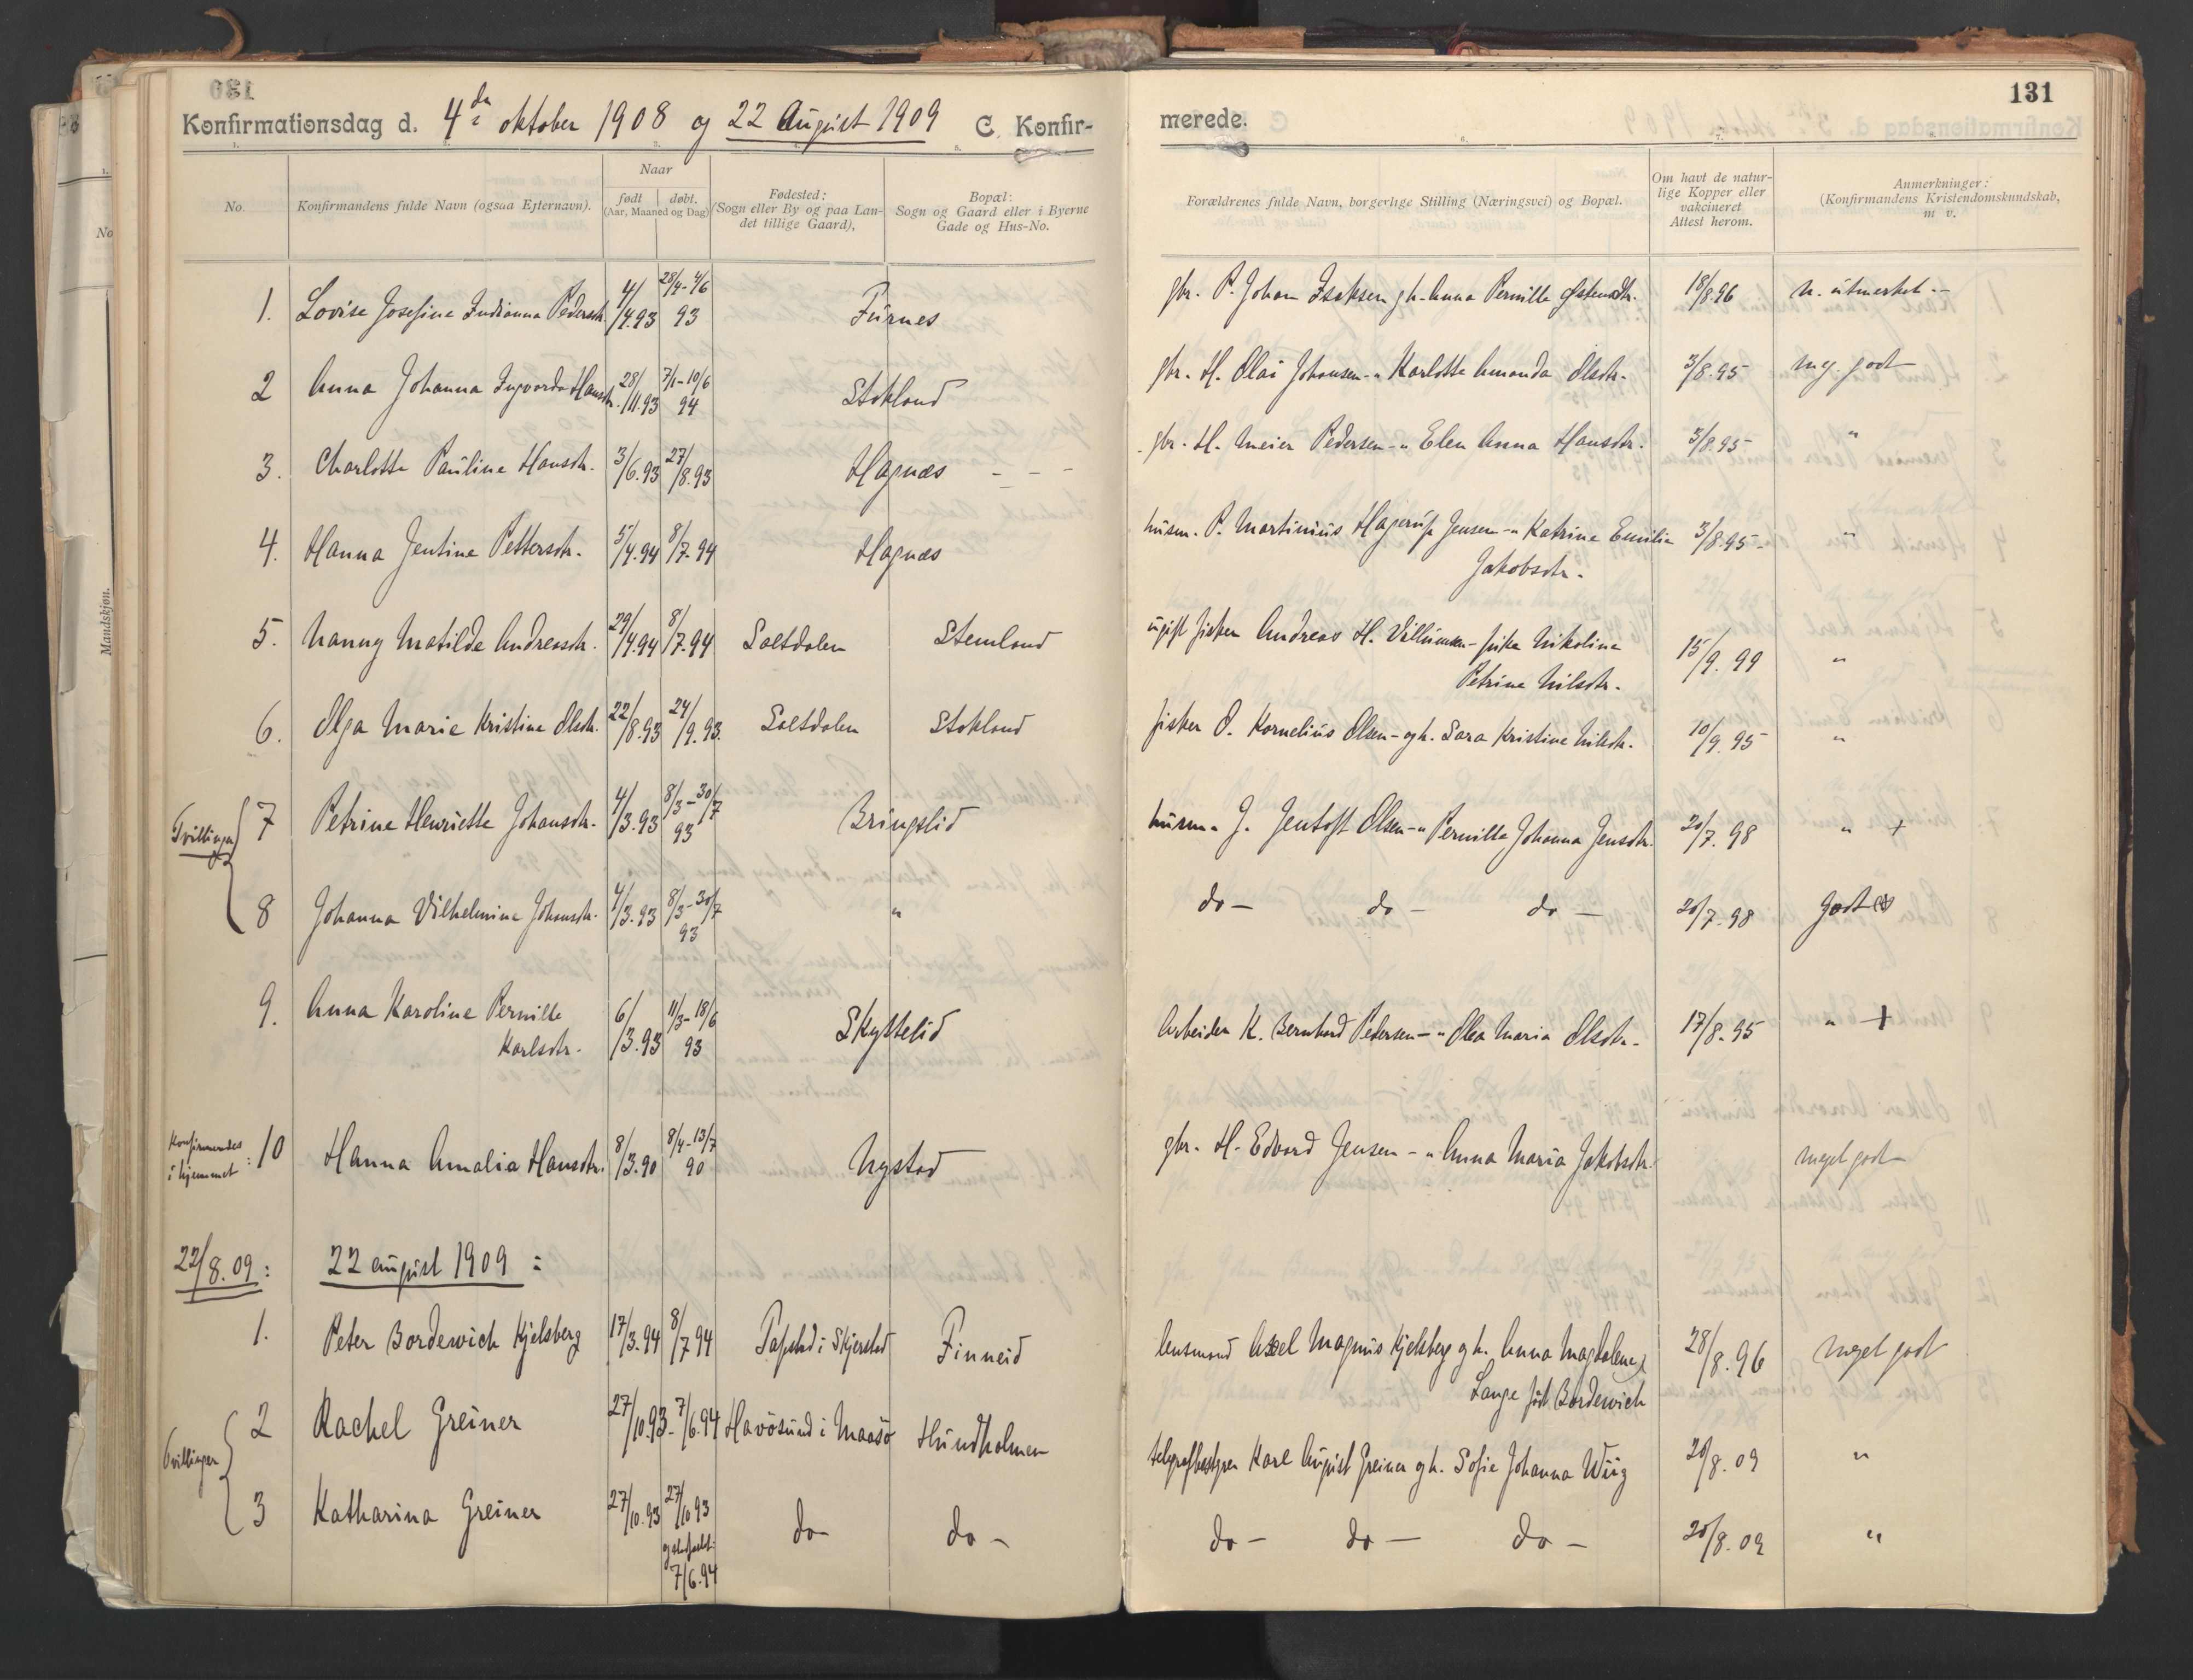 130
Konfirmationsdag d. 4de oktober 1908 og 22 August 1909 C. Konfir-
merede.
131
No.
Konfirmandens fulde Navn (ogsaa Efternavn).
Naar
født | døbt.
(Aar, Maaned og Dag)
Fødested:
(Sogn eller By og paa Lan-
det tillige Gaard),
Bopæl:
Sogn og Gaard eller i Byerne
Gade og Hus-No.
Forældrenes fulde Navn, borgerlige Stilling (Næringsvei) og Bopæl.
Om havt de natur-
lige Kopper eller
vakcineret
Attest herom.
Anmerkninger:
(Konfirmandens Kristendomskundskab,
m v.
1. Lovise Josefine Indianna Pedersdtr. 4/4.93 28/4-4/6 93 Furnes gbr. P. Johan Isaksen gh. Anna Pernille Østensdtr. 18/8.96 m. utmerket.-
2 Anna Johanna Ingvarda Hansdtr. 28/11.93 7/1-10/6 94 Stokland gbr. H. Olai Johansen - " Karlotte Amanda Olsdtr. 3/8.95 meg. godt
3. Charlotte Pauline Hansdtr. 3/6.93 27/8.93 Hagnæs - - - gbr. H. Meier Pedersen - " Elen Anna Hansdtr. 3/8.95 "
4. Hanna Jentine Pettersdtr. 5/4.94 8/7.94 Hagnæs husm. P. Martinius Hagerup Jensen - " Katrine Emilie 3/8.95 - "
Jakobsdtr.
5. Nanny Matilde Andreasdtr. 29/4.94 8/7.94 Saltdalen Stemland ugift fisker Andreas H. Villumsen - pike Nikoline 15/9.99 "
Petrine Nilsdtr.
6. Olga Marie Kristine Olsdtr. 22/8.93 24/9.93. Saltdalen Stokland fisker O. Kornelius Olsen - gh. Sara Kristine Nilsdtr. 10/9.95 "
Tvillinger
7 Petrine Henriette Johansdtr. 4/3.93 8/3-30/7 93 Bringslid husm. J. Jentoft Olsen - " Pernille Johanna Jensdtr. 20/7.98 " +
8 Johanna Vilhelmine Johansdtr. 4/3.93 8/3-30/7 93 " do - do - do - 20/7.98 godt
9. Anna Karoline Pernille
Karlsdtr. 6/3.93 11/3-18/6 93 Skyttelid Arbeider K. Bernhard Pedersen - " Olea Maria Olsdtr. 17/8.95 " +
Konfirmerdes
i hjemmet : 10 Hanna Amalia Hansdtr. 8/3.90 8/4-13/7 90 Nystad gbr. H. Edvard Jensen - " Anna Maria Jakobsdtr. meget godt
22/8.09: 22 august 1909 :
1. Peter Bordewich Kjelsberg 17/3.94 8/7 94 i Skjerstad Finneid lensmand Axel Magnus Kjelsberg gh. Anna Magdalene 28/8.96 meget godt
Lange født Bordewich
Tvillinger
2 Rachel Greiner 27/10.93 - 7/6.94 Havösund i Maasö Hundholmen telegrafbestyrer Karl August Greiner gh. Sofie Johanna Wiig 20/8.09 "
3 Katharina Greiner 27/10.93 27/10 93 do - do - do - do - do - 20/8.09 "
7/6.94
Mandskjøn.